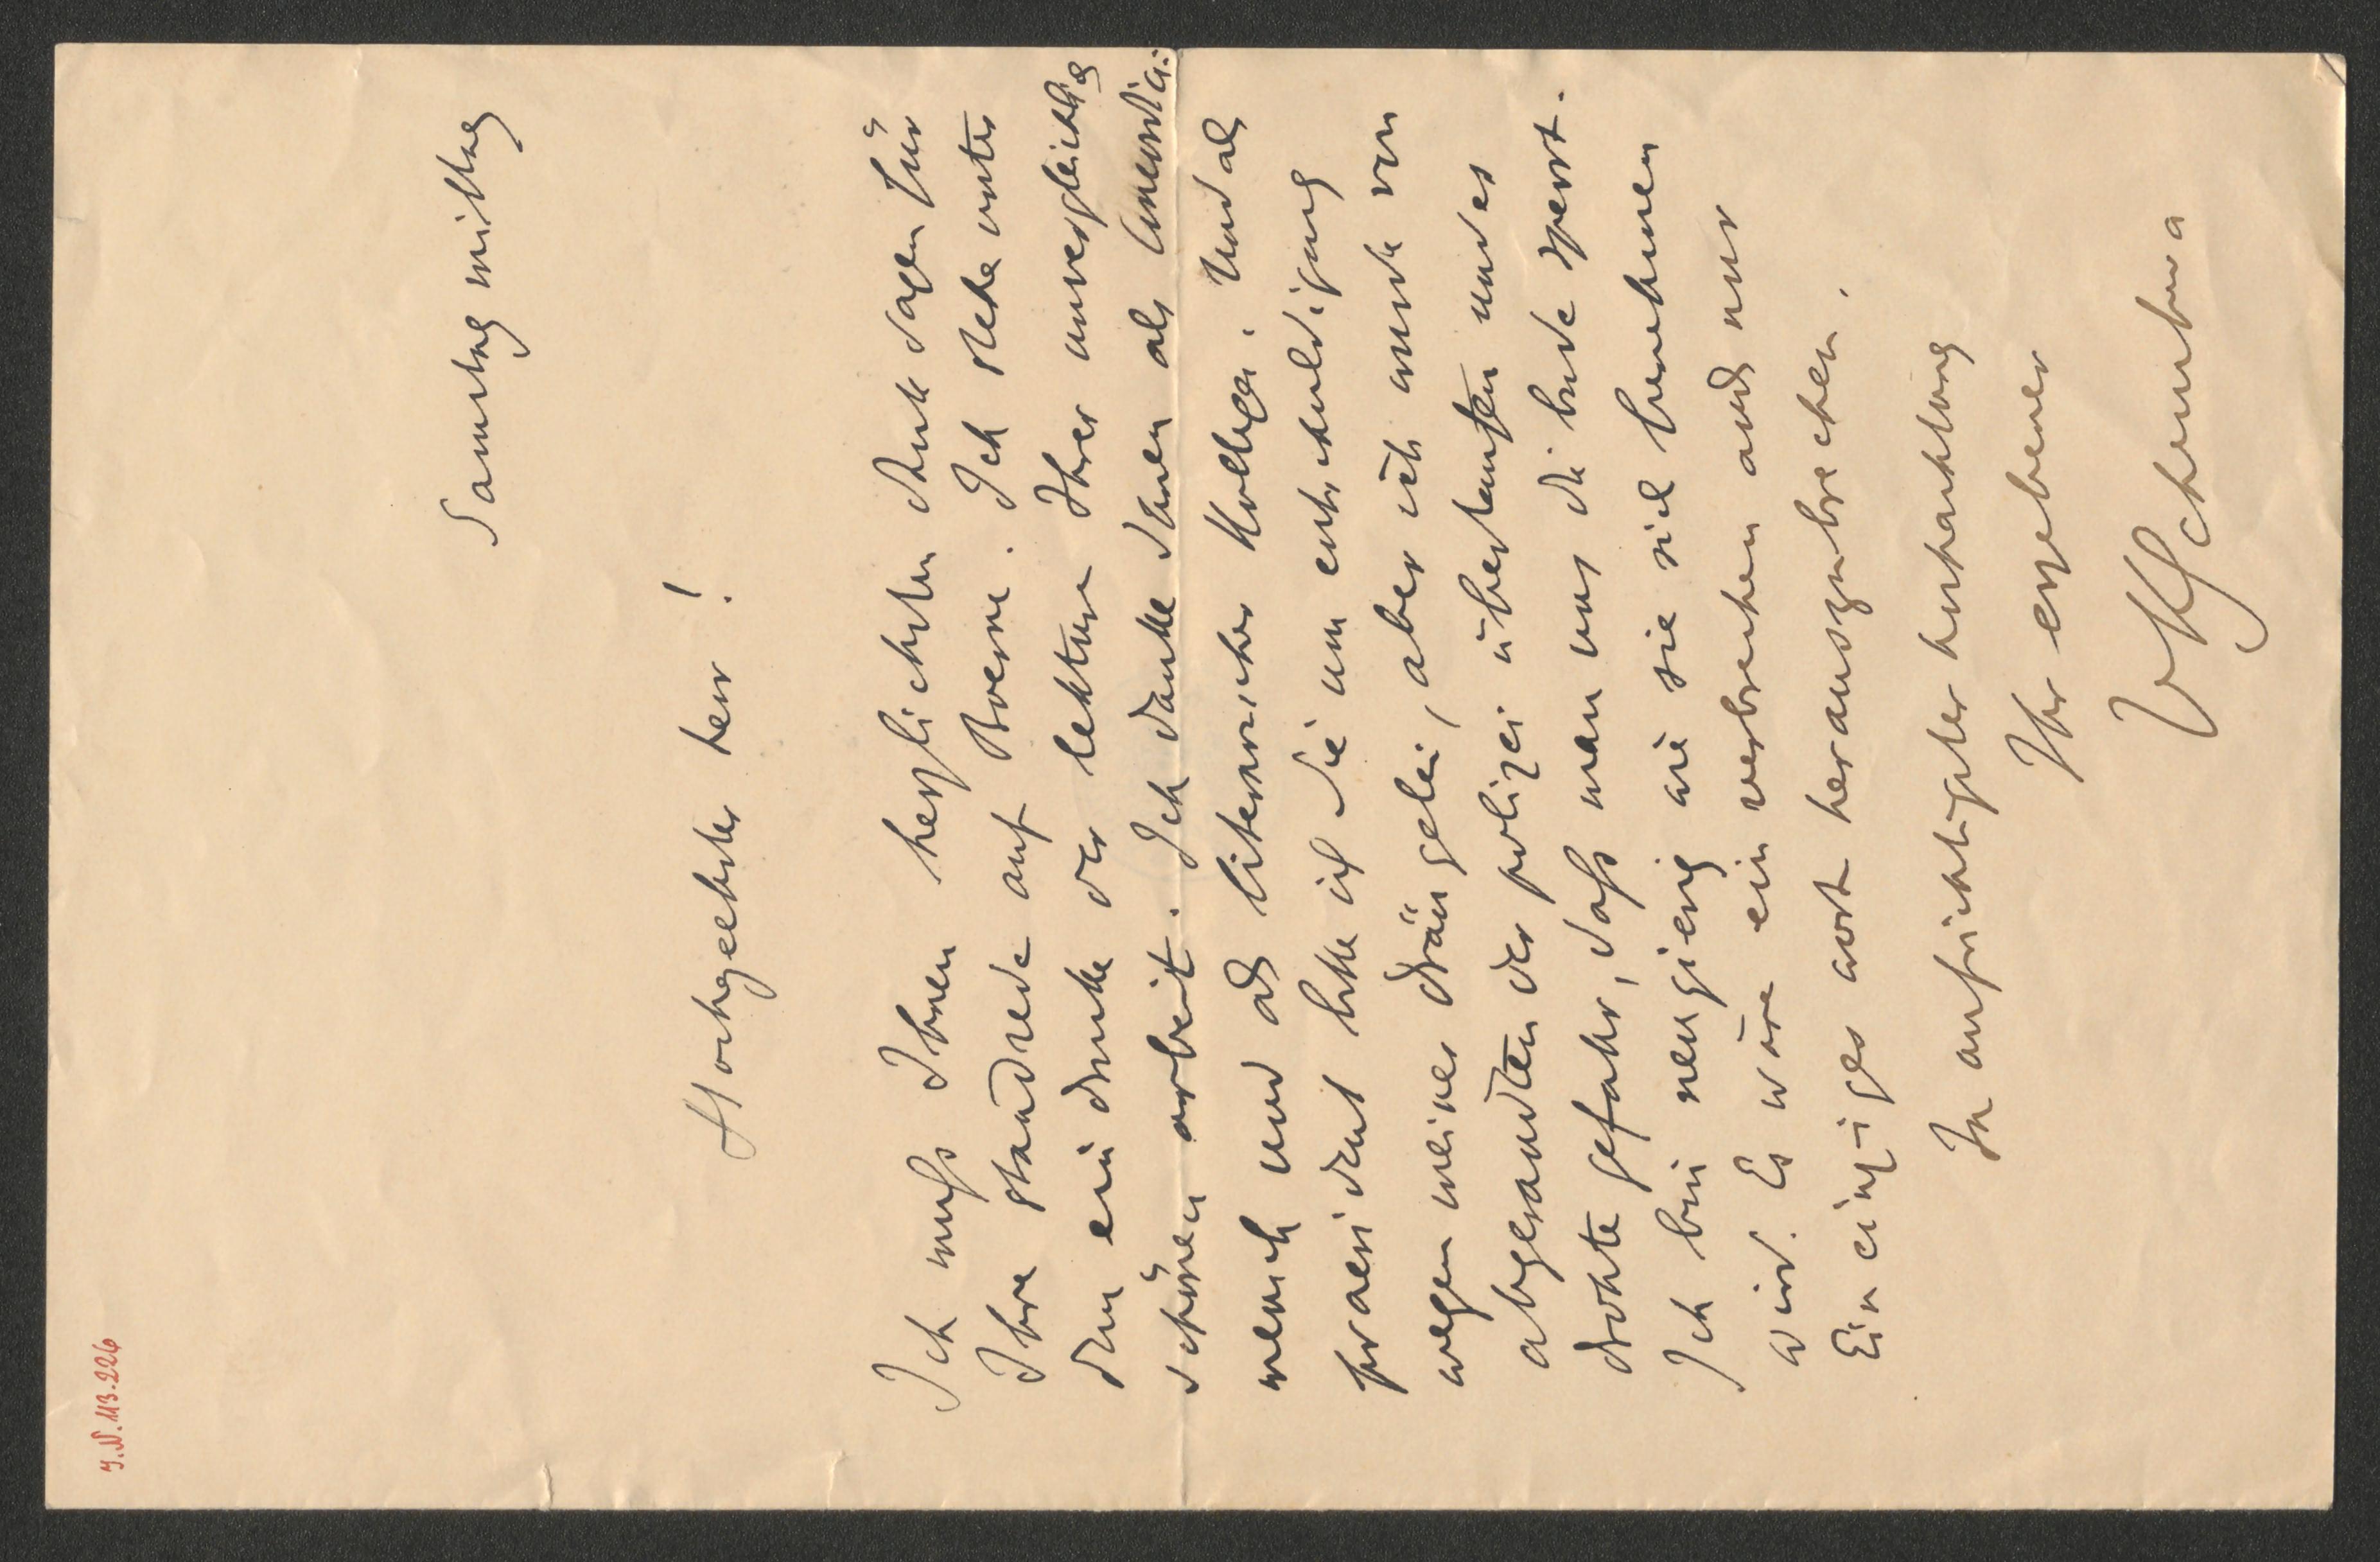 J.N. 113.226
Samstag mittag
Hochgeehrter herr!
Ich muss Ihnen herzlichsten dank sagen für
Ihre standrede auf Boerne. Ich stehe unter
dem eindrucke der lekture Ihrer unvergleichlich
schönen arbeit. Ich danke Ihnen als
mensch und als literarischer kollege. Und als
praesident bitte ich Sie um entschuldigung
wegen meiner drängelei, aber ich wurde von
abgesandten der polizei überlaufen und es
drohte gefahr, dass man uns die bude sperrt.
Ich bin neugierig wie sie sich benehmen
wird. Es wäre ein verbrechen auch nur
Ein einziges wort herauszubrechen.
In aufrichtigster hochachtung
Ihr ergebener